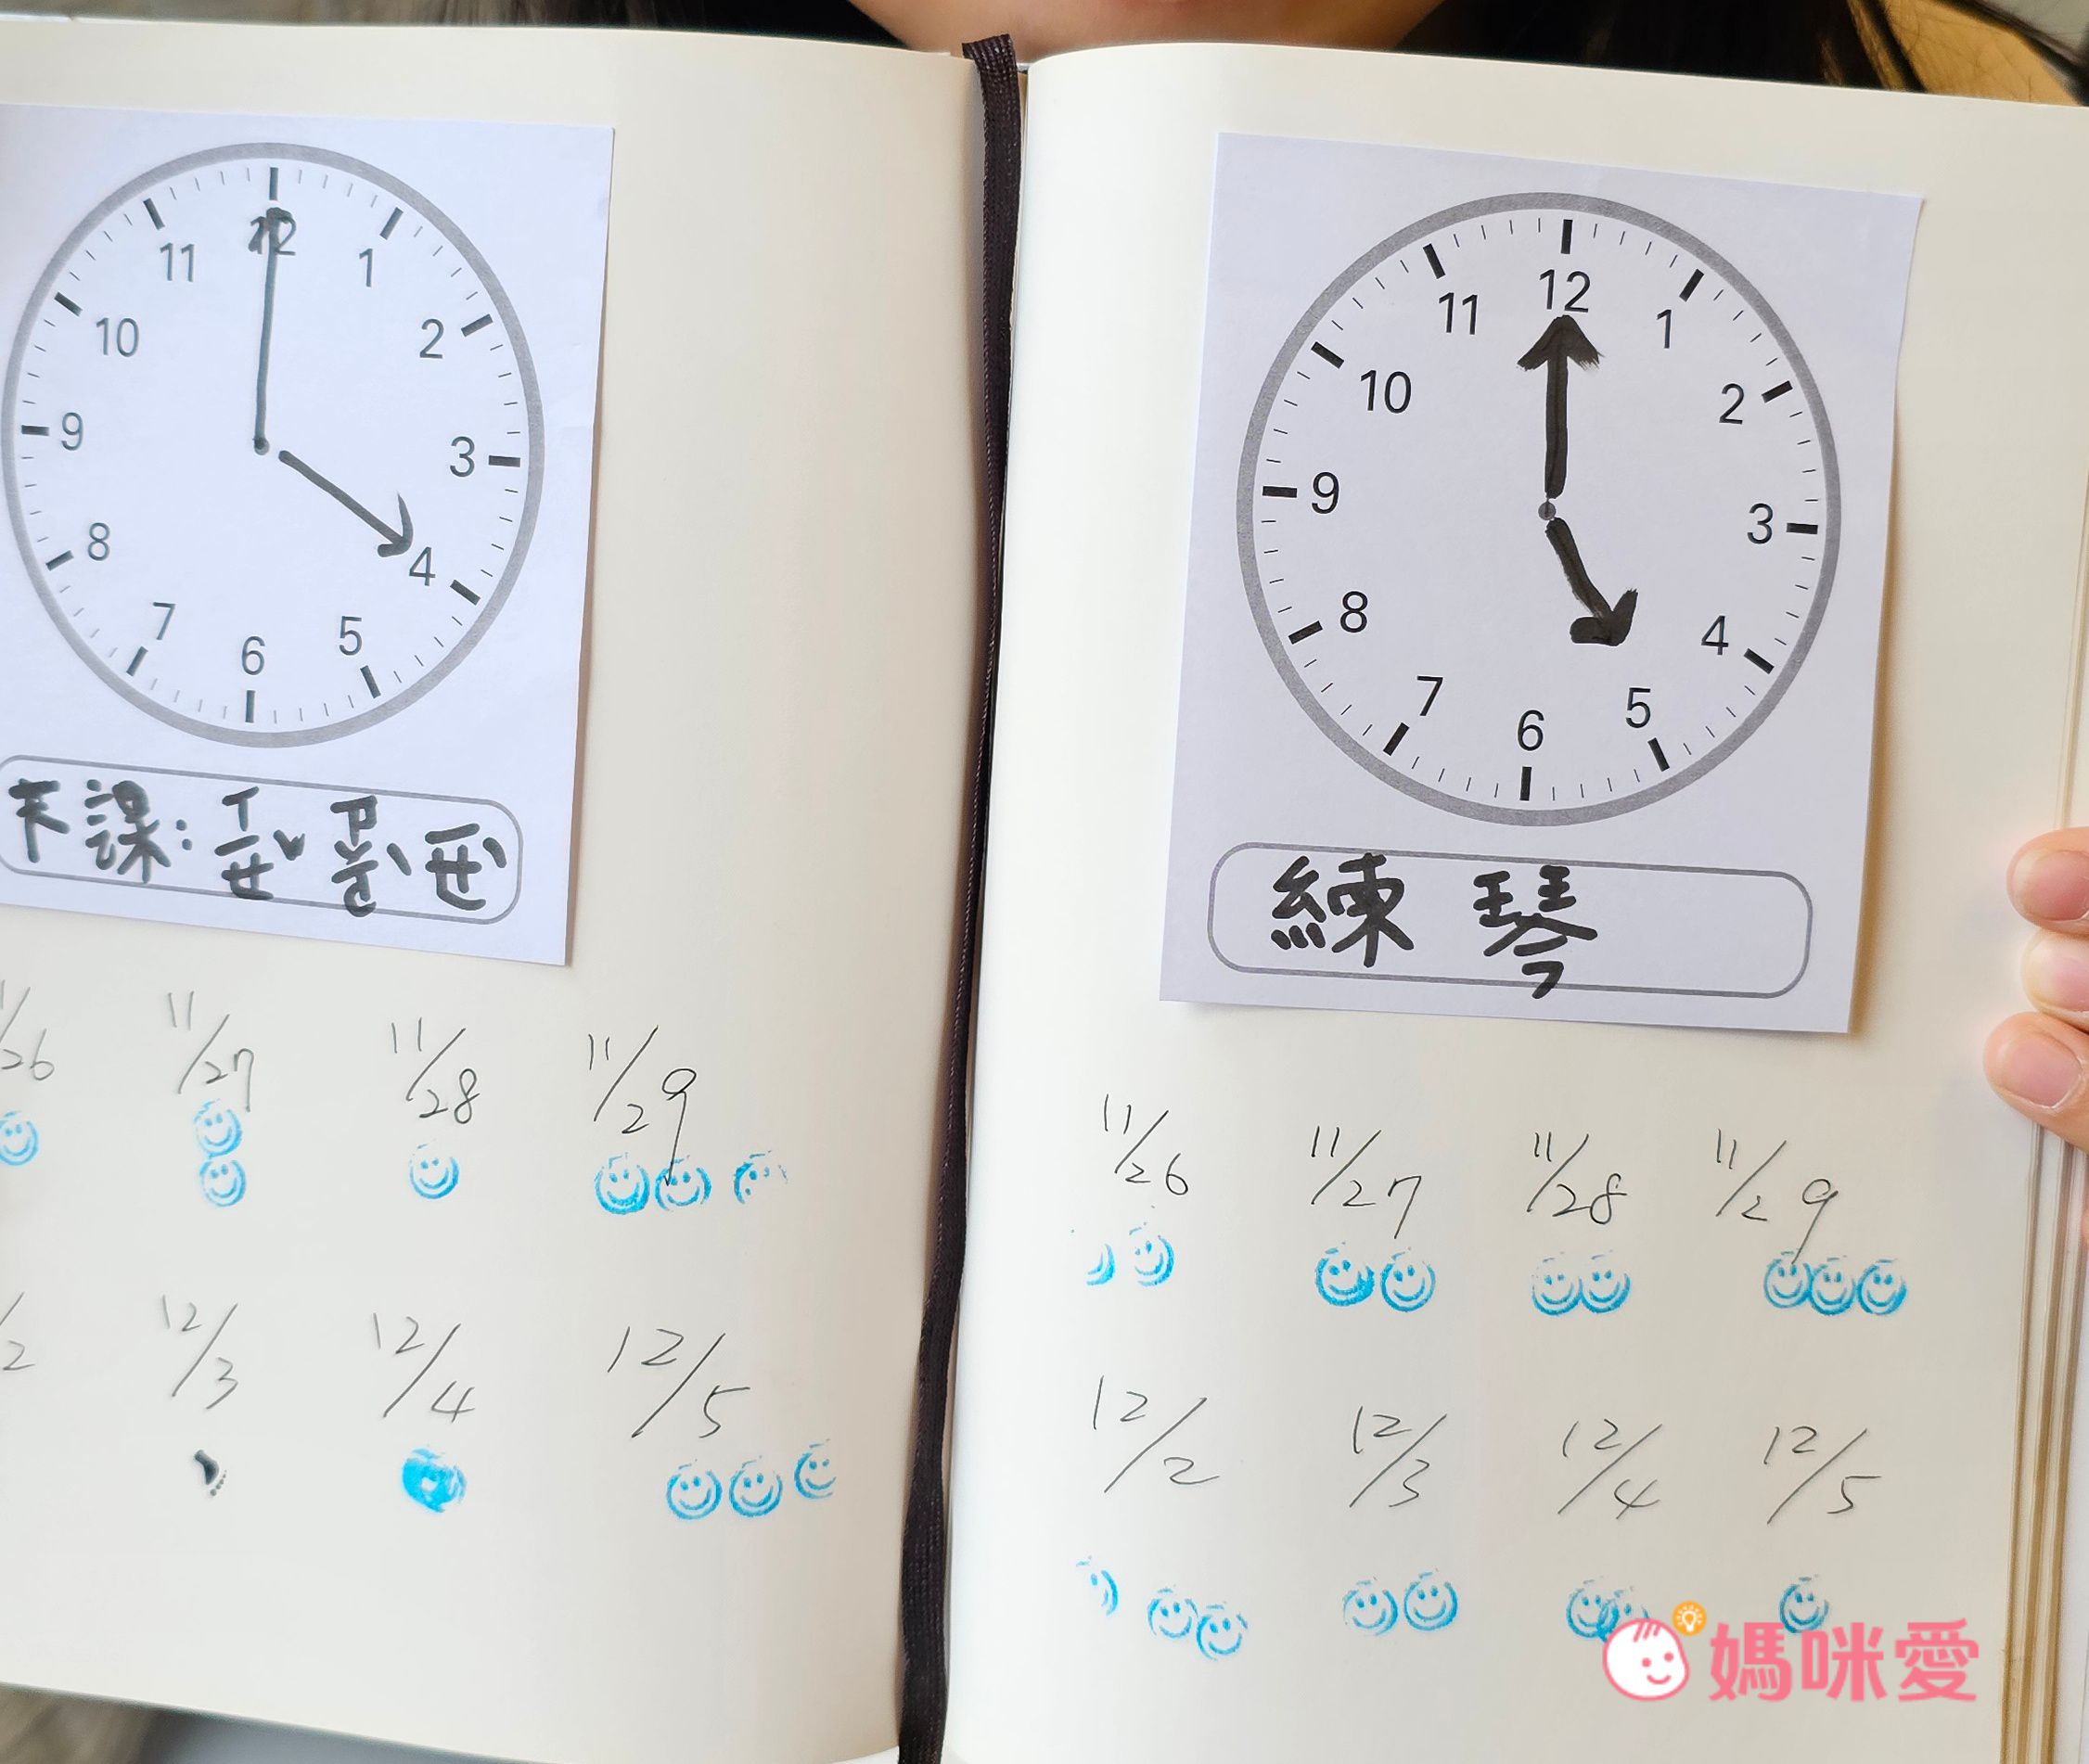 12
11
1
10
2
9
3
8
4
7
5
6
11/27
11/28
11/29
12/3
12/4
12/5
12
11
1
10
2
9
3
8
4
7
5
6
練琴
11/26
11/27
11/28
11/29
12/2
12/3
12/4
12/5
媽咪愛